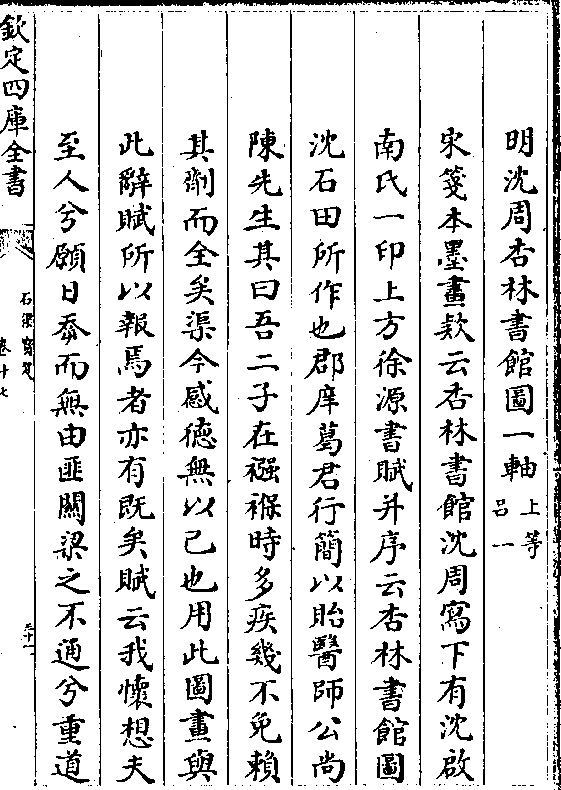 明沈周杏林書館圖一軸
上等
吕一
宋箋本墨畫欵云杏林書館沈周寫下有沈啟
南氏一印上方徐源書賦并序云杏林書館圖
沈石田所作也郡庠葛君行簡以貽醫師公尚
陳先生其曰吾二子在襁褓時多疾幾不免賴
其劑而全矣渠今感德無以已也用此圖畫與
此辭賦所以報焉者亦有既矣賦云我懷想夫
至人兮願日忝而無由匪關梁之不通兮重道
欽定四庫全書
卷十七